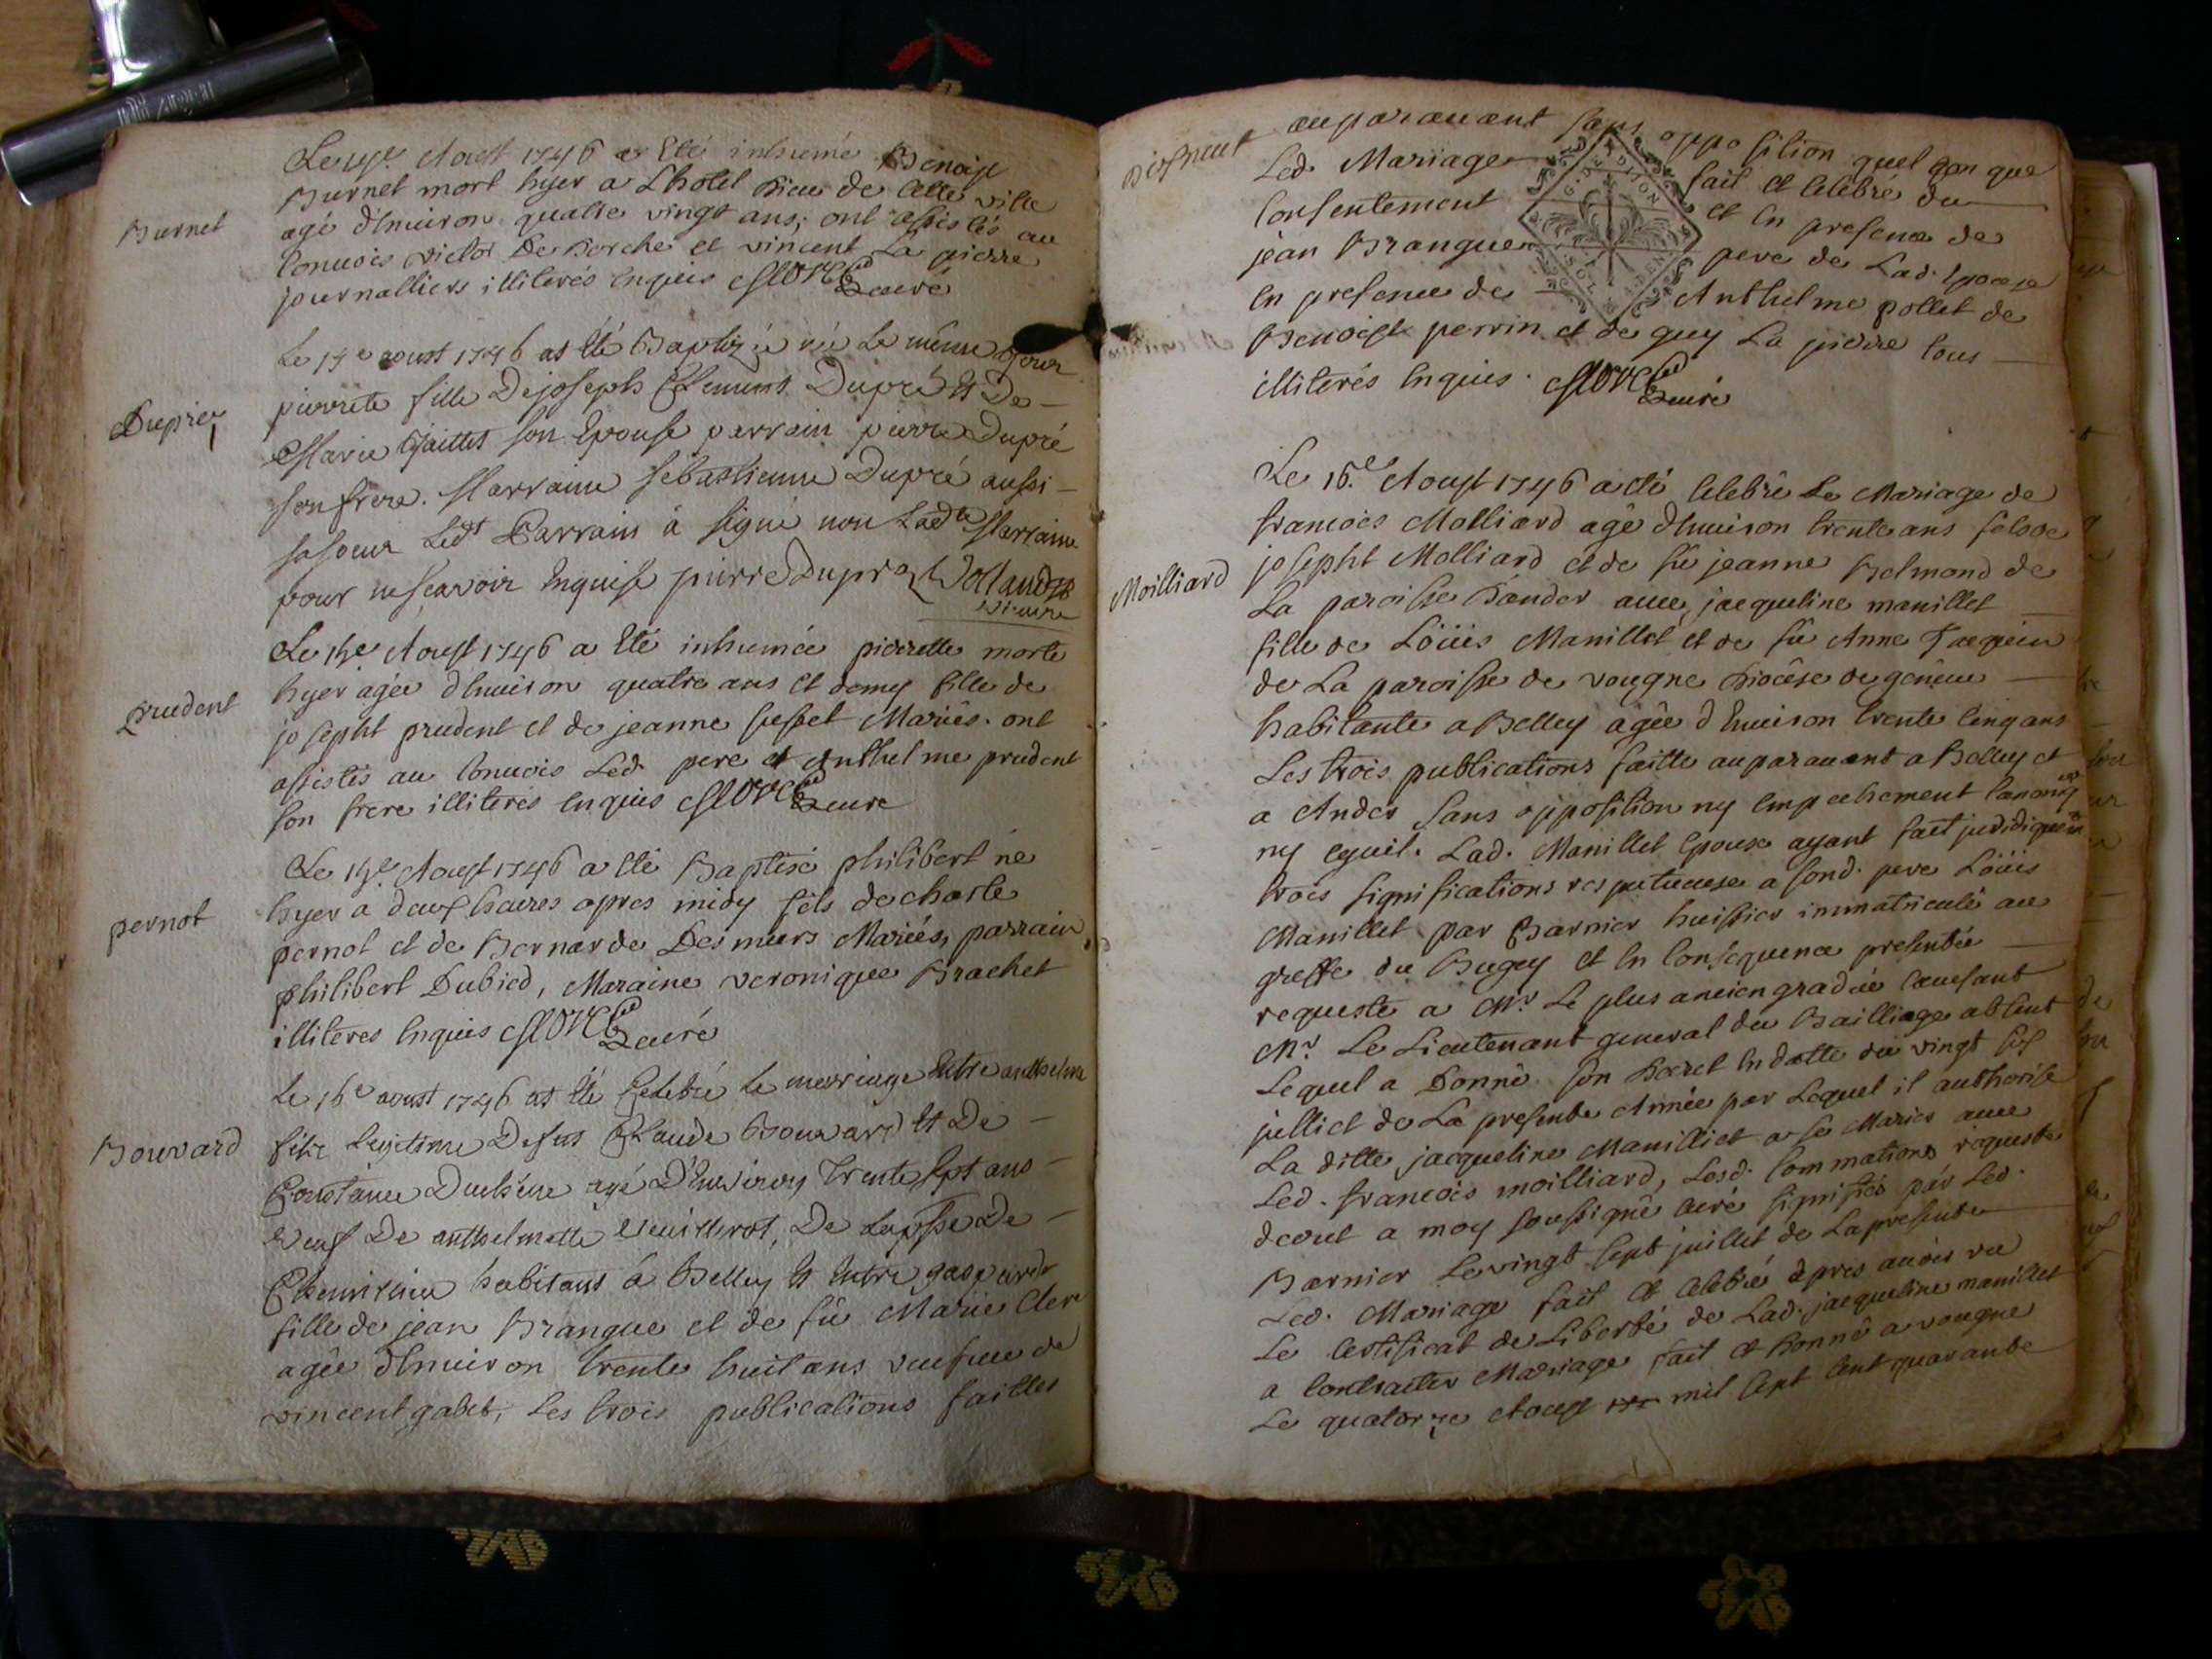 Burnet
Aoust 1746 a Eté inhumé Benoist
Burnet mort hyer a Lhotel Dieu de Cette ville
agé d'Enuiron quatre vingt ans; ont assistés au
Conuois victor De Borche et vincent La pierre
journalliers illiterés Enquis curé
Duprez
Le 14e aoust 1746 at Eté Baptizée née Le même jour
pierrete fille De joseph Clemens Dupré Et De
Marie son Epouse parrain pierre Dupré
son frere. Marraine sebastienne Dupré aussi
sa soeur Ledt Parrain à signé non Ladte Marraine
pour ne sçavoir Enquise pierre Dupraz
vicaire
prudent
Aoust 1746 a Eté inhumée pierrette morte
hyer agée d'Enuiron quatre ans et demy fille de
josepht prudent et de jeanne Mariés. ont
assistés au Conuois Led. pere et Anthelme prudent
son frere illiterés Enquis curé
pernot
Aoust 1746 a Eté Baptisé philibert né
hyer a deux heures apres midy fils de charle
pernot et de Bernarde Desmurs Mariés, parrain
philibert Dubied, Maraine veronique Brachet
illiteres Enquis curé
Bouvard
Le 16e aoust 1746 at Eté Celebré Le marriage Entre anthelme
fils Legitime Defus Claude Bouvard Et De
Constance agé D'Environ Trente sept ans
Veuf De anthelmette De
habitans à Belley Et Entre gasparde
fille de jean Brangue et de fûe Marie Cler
agée d'Enuiron trente huit ans veufue de
vincent gabet; Les trois publications faittes
auparauant sans opposition quel qon que
Led. Mariage fait et Celebré du
Consentement et En presence de
jean Brangue pere de Lad. Epouse
En presence de Anthelme pollet de
Benoist perrin et de guy La pierre tous
illiterés Enquis. curé
G. D. DIJON
Moilliard
Le 16.e Aoust 1746 a eté Celebré Le Mariage de
francois Molliard agé d'Enuiron trente ans fils de
josepht Molliard et de fûe jeanne Belmond de
La paroisse D'andes auec, jacqueline manillet
fille de Loüis Manillet et de fûe Anne
de La paroisse de vougne Diocése de genêue
habitante a Belley agée d'Enuiron trente Cinq ans
Les trois publications faitte auparauant a Belley et
a Andes sans opposition ny Empechement
ny Ciuil. Lad. Manillet Epouse ayant fait
trois significations respetueuse a sond. pere Loüis
Manillet par Barnier huissier immatriculé au
greffe du Bugey et En Consequence presentée
requeste a Mr. Le plus ancien gradué
Mr. Le Lieutenant general du Bailliage absent
Lequel a Donné son En datte du vingt six
julliet de La presente Année par Lequel il authorise
La ditte jacqueline Manilliet a se Marier auec
Led. francois moilliard, Lesd. sommations requeste
a moy soussigné Curé signifiés par Led.
Barnier Le vingt sept juillet de La presente
Led. Mariage fait et Celebré apres auoir vu
Le Certificat de Liberté de Lad. jacqueline manillet
a Contracter Mariage fait et Donné a vougne
Le quatorze Aoust mil sept Cent quarante